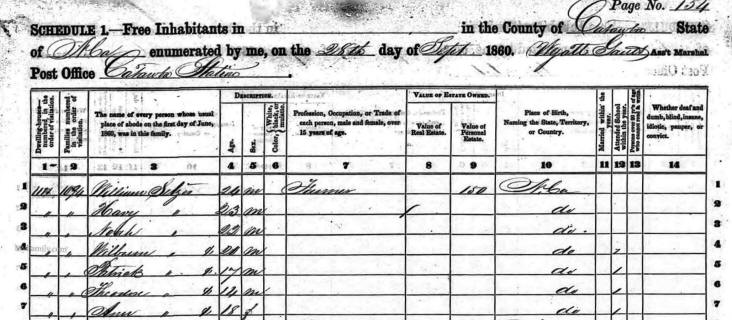 Page No. 154
SCHEDULE 1.—Free Inhabitants in in the County of Catawba State
of N. Ca enumerated by me, on the 28th day of Sept 1860. Wyatt Ass't Marshal
Post Office Catawba Station
DESCRIPTION. VALUE OF ESTATE OWNED.
Dwelling-houses—numbered in the order of visitation. Families numbered in the order of visitation. The name of every person whose usual place of abode on the first day of June, 1860, was in this family. Age. Sex. Color, {White, black, or mulatto. Profession, Occupation, or Trade of each person, male and female, over 15 years of age. Value of Real Estate. Value of Personal Estate. Place of Birth, Naming the State, Territory, or Country. Married within the year. Attended School within the year. Whether deaf and dumb, blind, insane, idiotic, pauper, or convict.
1 2 3 4 5 6 7 8 9 10 11 12 13 14
1 1094 William Setzer 24 m Farmer 150 N. Ca 1
2 " " " 23 m do 2
3 " " Noah " 22 m do 3
4 " " Wilburn " 20 m do 4
5 " " Patrick " 17 m do 1 5
6 " " Theodore " 14 m do 1 6
7 " " Ann " 18 f do 1 7